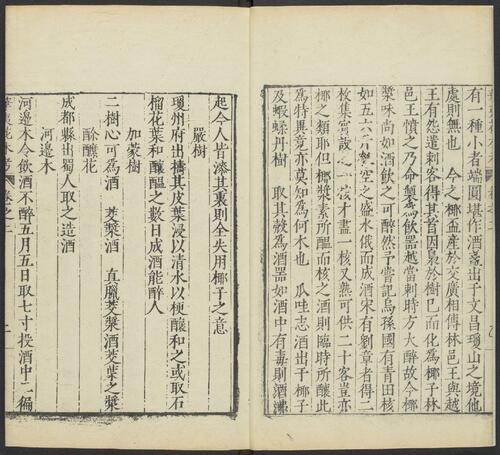 有一種小者端圓堪作酒盞出于文昌瓊山之境他
處則無也　今之椰盃產於交廣相傳林邑王與越
王有怨遣刺客得其首因懸於樹巳而化為椰子林
邑王憤之乃命製為飲器越當刺時方大醉故今椰
漿味尚如酒飲之可醉然予嘗記烏孫國有青田核
如五六升瓠空之盛水俄而成酒宋有劉章者得二
枚集賓設之一核才盡一核又熟可供二十客豈亦
椰之類耶但椰漿素所醞而核之酒則臨時所釀此
為特異竟亦莫知為何木也　瓜哇志酒出于椰子
及蝦蝚丹樹　取其殼為酒器如酒中有毒則酒沸
起今人皆漆其裏則全失用椰子之意
嚴樹
瓊州府出擣其皮葉浸以清水以粳釀和之或取石
榴花葉和釀醞之數日成酒能醉人
加蒙樹
二樹心可為酒　茭漿酒　直臘茭漿酒茭葉之漿
酴醾花
成都縣出蜀人取之造酒
河邊木
河邊木令飲酒不醉五月五日取七寸投酒中二徧
卷之二